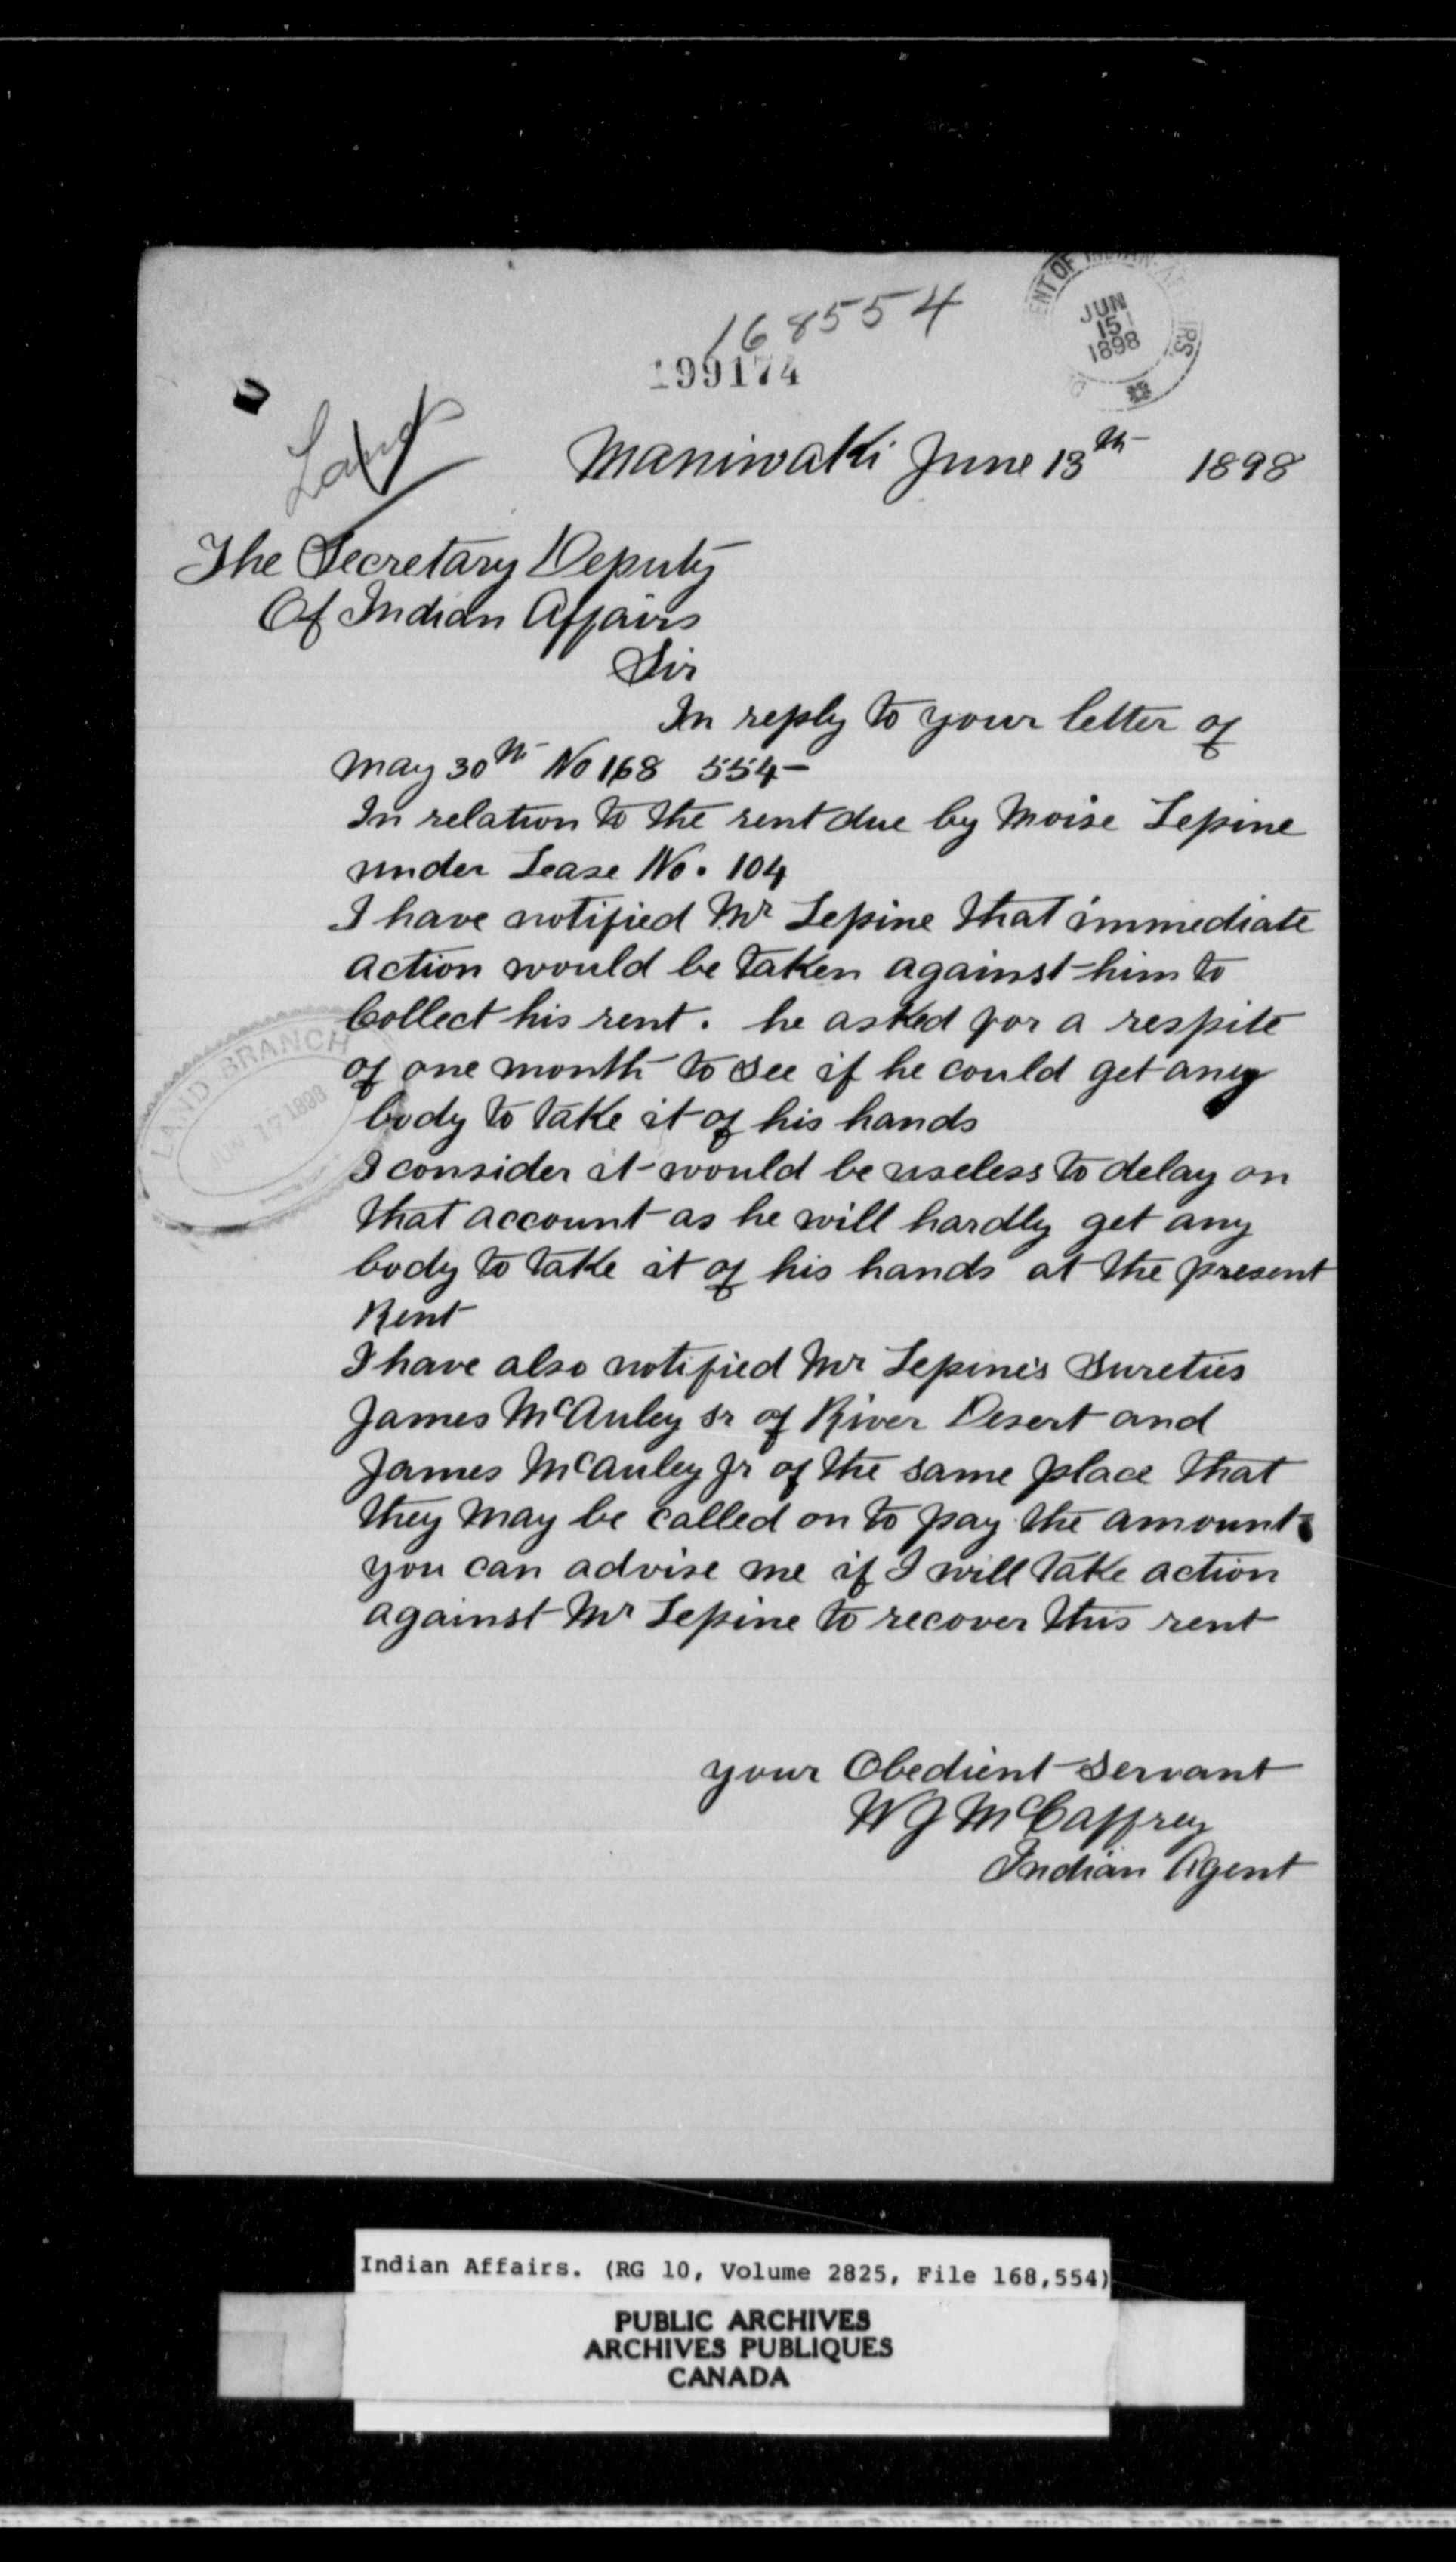 168554
199174
JUN
15
1898
Land
Maniwaki June 13th 1898
The Secretary Deputy
Of Indian Affairs
Sir
In reply to your letter of
May 30th No 168 554-
In relation to the rent due by Moise Lepine
under Lease No. 104
I have notified Mr Lepine that immediate
action would be taken against him to
Collect his rent. he asked for a respite
of one month to see if he could get any
body to take it of his hands
I consider it would be useless to delay on
that account as he will hardly get any
body to take it of his hands at the present
Rent
I have also notified Mr Lepine's Sureties
James McAuley sr of River Desert and
James McAuley Jr of the same place that
they may be called on to pay the amount
you can advise me if I will take action
against Mr Lepine to recover this rent
LAND BRANCH
JUN 17 1898
your Obedient Servant
W J McCaffrey
Indian Agent
Indian Affairs. (RG 10, Volume 2825, File 168,554)
PUBLIC ARCHIVES
ARCHIVES PUBLIQUES
CANADA